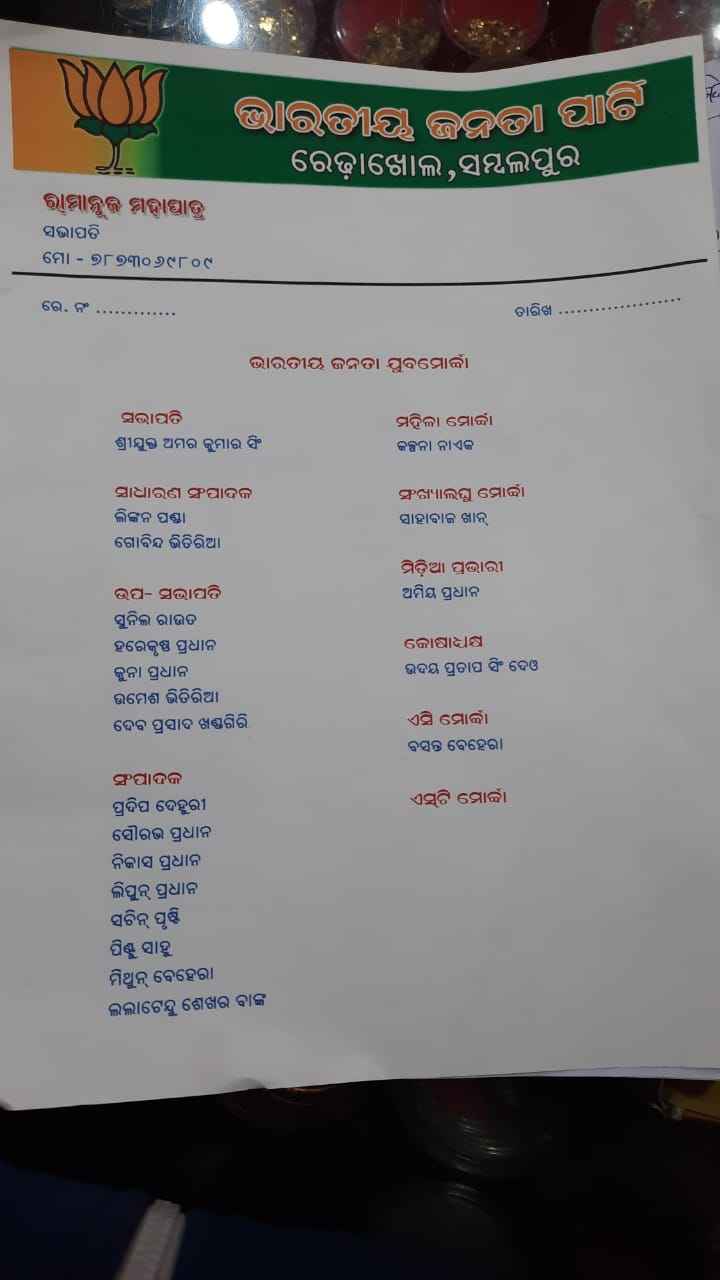 ଭାରତୀୟ ଜନତା ପାର୍ଟି
ରେଢ଼ାଖୋଲ,ସମ୍ବଲପୁର
ରାମାନୁଜ ମହାପାତ୍ର
ସଭାପତି
ମୋ - ୭୮୭୩୦୬୯୮୦୯
ରେ. ନଂ .............
ତାରିଖ .....................
ଭାରତୀୟ ଜନତା ଯୁବମୋର୍ଚ୍ଚା
ସଭାପତି
ଶ୍ରୀଯୁକ୍ତ ଅମର କୁମାର ସିଂ
ସାଧାରଣ ସଂପାଦକ
ଲିଙ୍କନ ପଣ୍ଡା
ଗୋବିନ୍ଦ ଭିତିରିଆ
ଉପ- ସଭାପତି
ସୁନିଲ ରାଉତ
ହରେକୃଷ୍ଣ ପ୍ରଧାନ
କୁନା ପ୍ରଧାନ
ଉମେଶ ଭିତିରିଆ
ଦେବ ପ୍ରସାଦ ଖଣ୍ଡଗିରି
ସଂପାଦକ
ପ୍ରଦିପ ଦେହୁରୀ
ସୌରଭ ପ୍ରଧାନ
ନିକାସ ପ୍ରଧାନ
ଲିପୁନ୍ ପ୍ରଧାନ
ସଚିନ୍ ପୃଷ୍ଟି
ପିଣ୍ଟୁ ସାହୁ
ମିଥୁନ୍ ବେହେରା
ଲଲାଟେନ୍ଦୁ ଶେଖର ବାଙ୍କ
ମହିଳା ମୋର୍ଚ୍ଚା
କଳ୍ପନା ନାଏକ
ସଂଖ୍ୟାଲଘୁ ମୋର୍ଚ୍ଚା
ସାହାବାଜ ଖାନ୍
ମିଡ଼ିଆ ପ୍ରଭାରୀ
ଅମିୟ ପ୍ରଧାନ
କୋଷାଧ୍ୟକ୍ଷ
ଉଦୟ ପ୍ରତାପ ସିଂ ଦେଓ
ଏସି ମୋର୍ଚ୍ଚା
ବସନ୍ତ ବେହେରା
ଏସ୍‌ଟି ମୋର୍ଚ୍ଚା